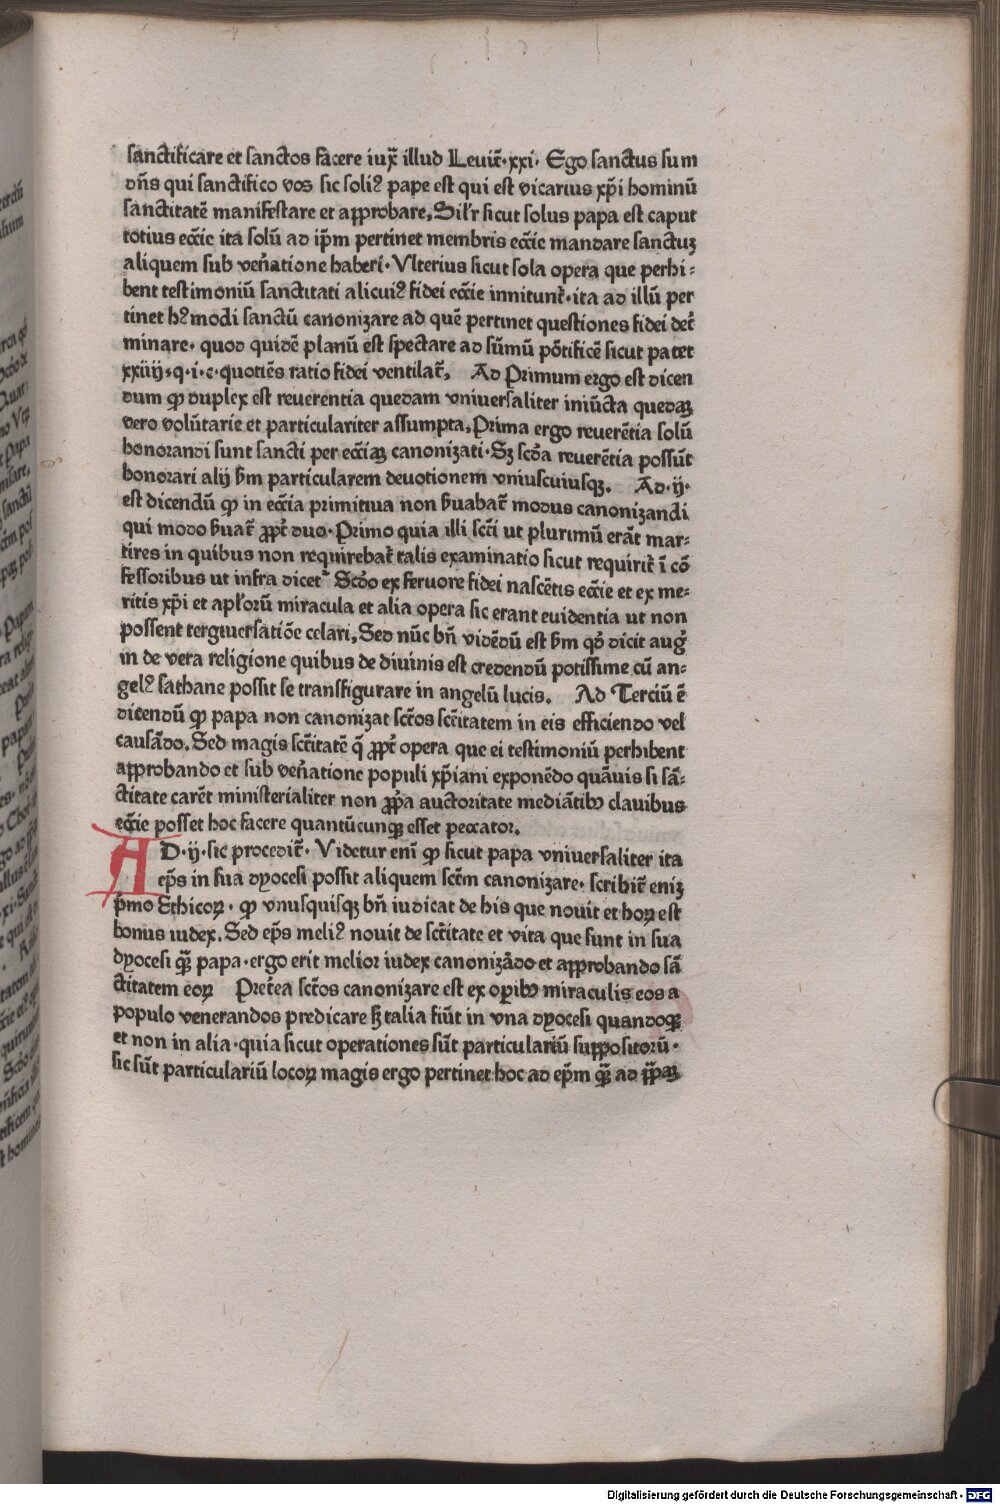 sanctificare et sanctos facere iux̄ illud Leuit̄·xxi· Ego sanctus sum
dn̄s qui sanctifico vos sic soliꝰ pape est qui est vicarius xp̄i hominū
sanctitatē manifestare et approbare, Sil'r sicut solus papa est caput
totius ecc̄ie ita solū ad ip̄m pertinet membris ecc̄ie mandare sanctuꝫ
aliquem sub ven̄atione haberi· Vlterius sicut sola opera que perhi:
bent testimoniū sanctitati alicuiꝰ fidei ecc̄ie innitunt̄·ita ad illū per
tinet hꝰmodi sanctū canonizare ad quē pertinet questiones fidei det̄
minare· quod quidē planū est spectare ad sūmū pōtificē sicut patet
xxiiij·q·i·c·quotiēs ratio fidei ventilat̄, Ad Primum ergo est dicen
dum ꝙ duplex est reuerentia quedam vniuersaliter iniūcta quedaꝫ
vero volūtarie et particulariter assumpta, Prima ergo reuerētia solū
honorandi sunt sancti per ecc̄iaꝫ canonizati· Sꝫ sc̄da reuerētia possūt
honorari alij s̄m particularem deuotionem vniuscuiusqꝫ. Ad·ij·
est dicendū ꝙ in ecc̄ia primitiua non s̄uabat̄ modus canonizandi
qui modo s̄uat̄ ꝓpt̄ duo· Primo quia illi sc̄ti ut plurimū erāt mar:
tires in quibus non requirebat̄ talis examinatio sicut requirit̄ ī cō
fessoribus ut infra dicet᷑ Sc̄do ex feruore fidei nascētis ecc̄ie et ex me:
ritis xp̄i et apl'orū miracula et alia opera sic erant euidentia ut non
possent tergiuersatiōe celari, Sed nūc bn̄ vidēdū est s̄m qd̄ dicit auḡ
in de vera religione quibus de diuinis est credendū potissime cū an:
gelꝰ sathane possit se transfigurare in angelū lucis. Ad Terciū ē
dicendū ꝙ papa non canonizat sc̄tos sc̄titatem in eis efficiendo vel
causādo. Sed magis sc̄titatē q̄ ꝓpt̄ opera que ei testimoniū perhibent
approbando et sub ven̄atione populi xp̄iani exponēdo quāuis si sā:
ctitate carēt ministerialiter non ꝓp̄a auctoritate mediātibꝫ clauibus
ecc̄ie posset hoc facere quantūcunqꝫ esset peccator.
AD·ij·sic procedit̄· Videtur enī ꝙ sicut papa vniuersaliter ita
ep̄s in sua dyocesi possit aliquem sc̄tm canonizare· scribit̄ eniꝫ
p̄mo Ethicoꝝ· ꝙ vnusquisqꝫ bn̄ iudicat de his que nouit et hoꝝ est
bonus iudex. Sed ep̄s meliꝰ nouit de sc̄titate et vita que sunt in sua
dyocesi qꝫ̄ papa·ergo erit melior iudex canonizādo et approbando sā
ctitatem eoꝝ Pret̄ea sc̄tos canonizare est ex oꝑibꝫ miraculis eos a
populo venerandos predicare sꝫ talia fiūt in vna dyocesi quandoqꝫ
et non in alia·quia sicut operationes sūt particulariū suppositorū·
sic sūt particulariū locoꝝ magis ergo pertinet hoc ad ep̄m qꝫ̄ ad pp̄aꝫ
Digitalisierung gefördert durch die Deutsche Forschungsgemeinschaft - DFG